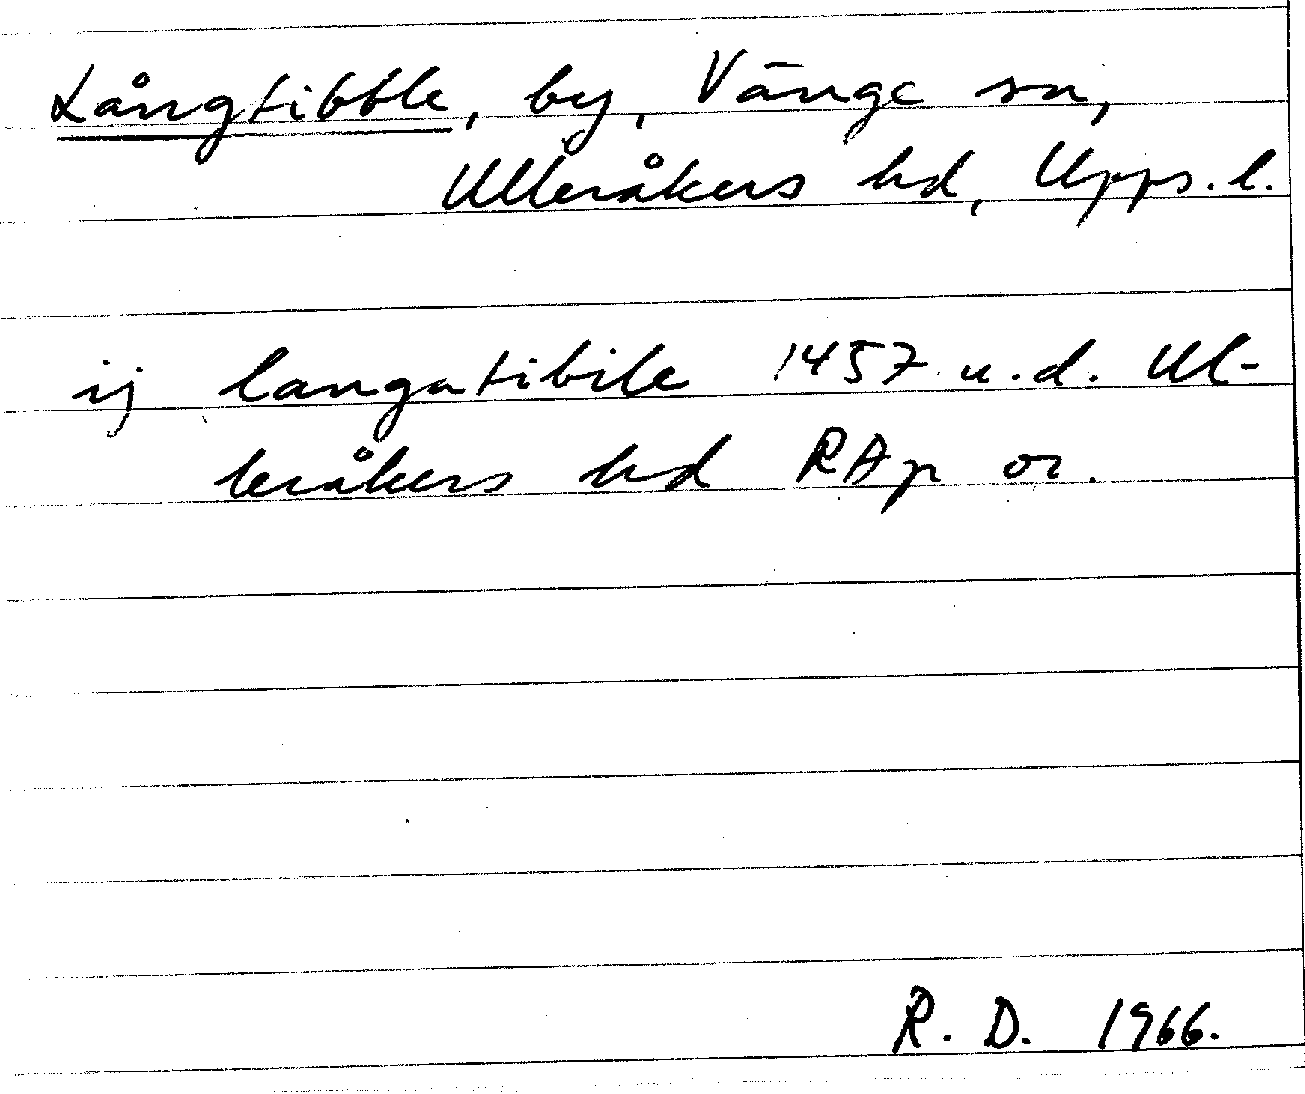 Långtibble, by, Vänge sn,
Ulleråkers hd, Upps. l.
ij langatibile 1457 u. d. Ul-
leråkers hd RAp or.
R. D. 1966.